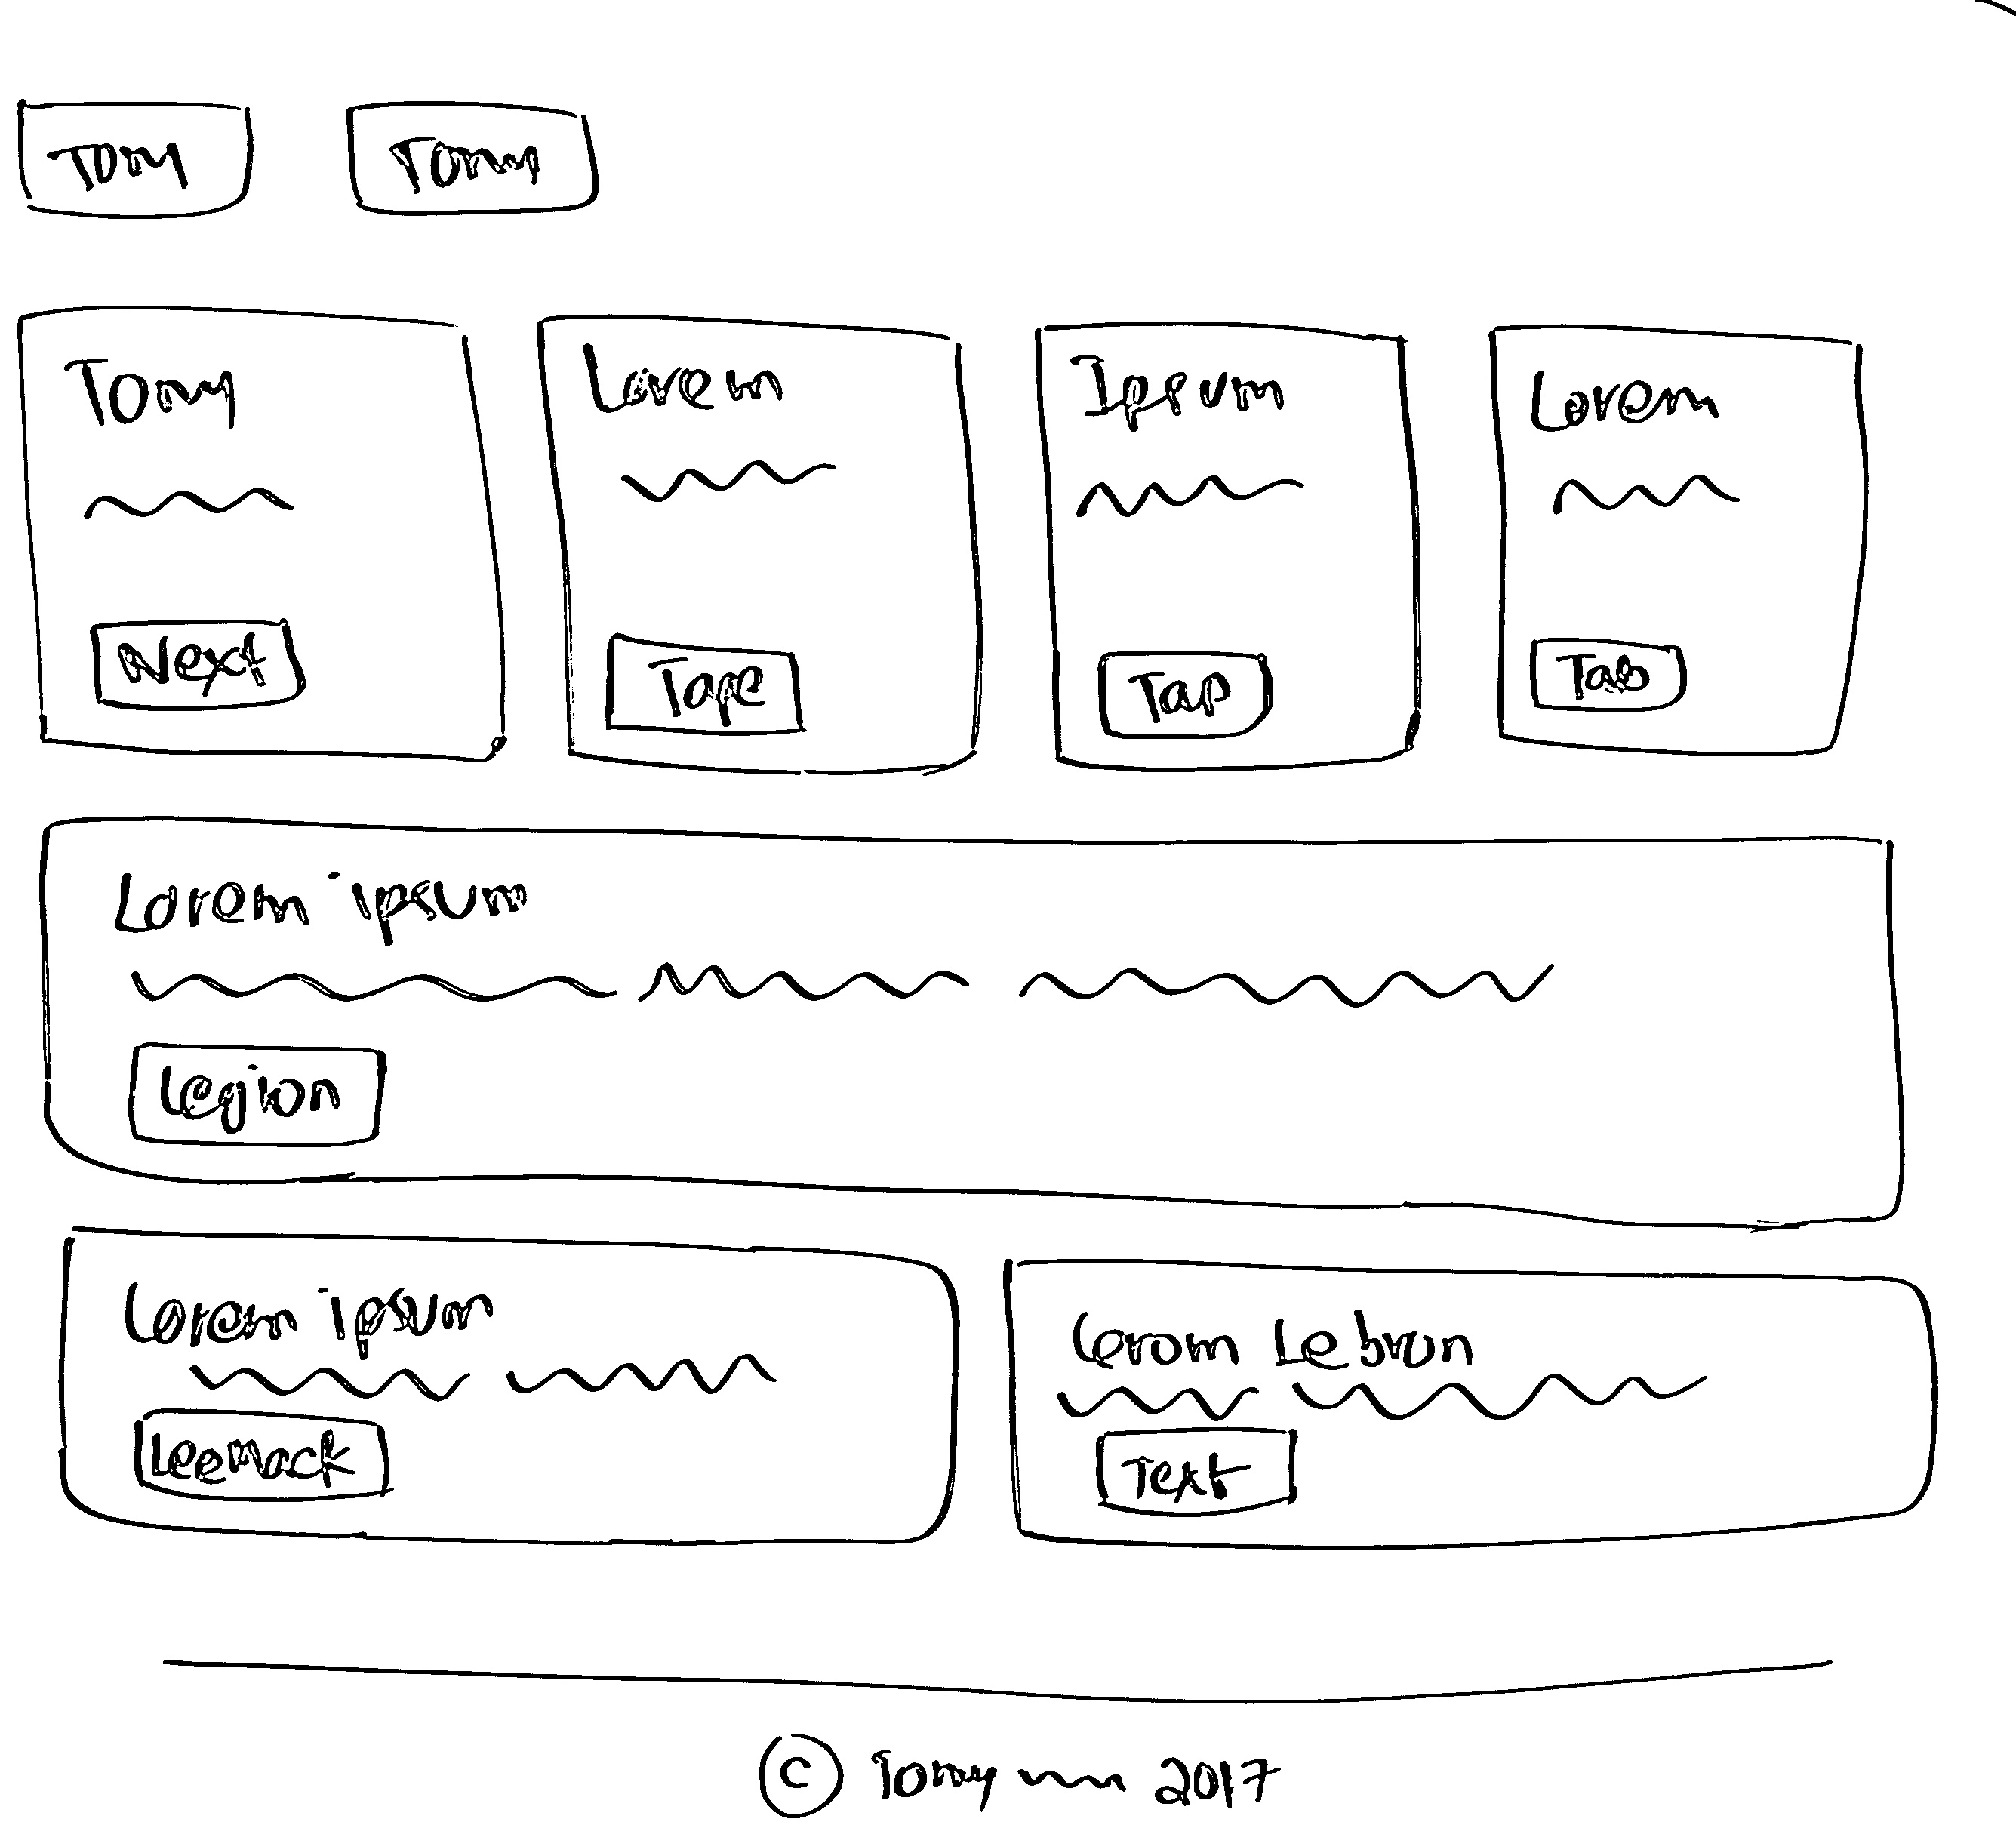 Tony Tony
Tony
Next
Lorem
Tape
Ipsum
Tap
Lorem
Tab
Lorem ipsum
Legion
Lorem ipsum
LeeMack
Lerom Lebron
Text
© Tony 2017